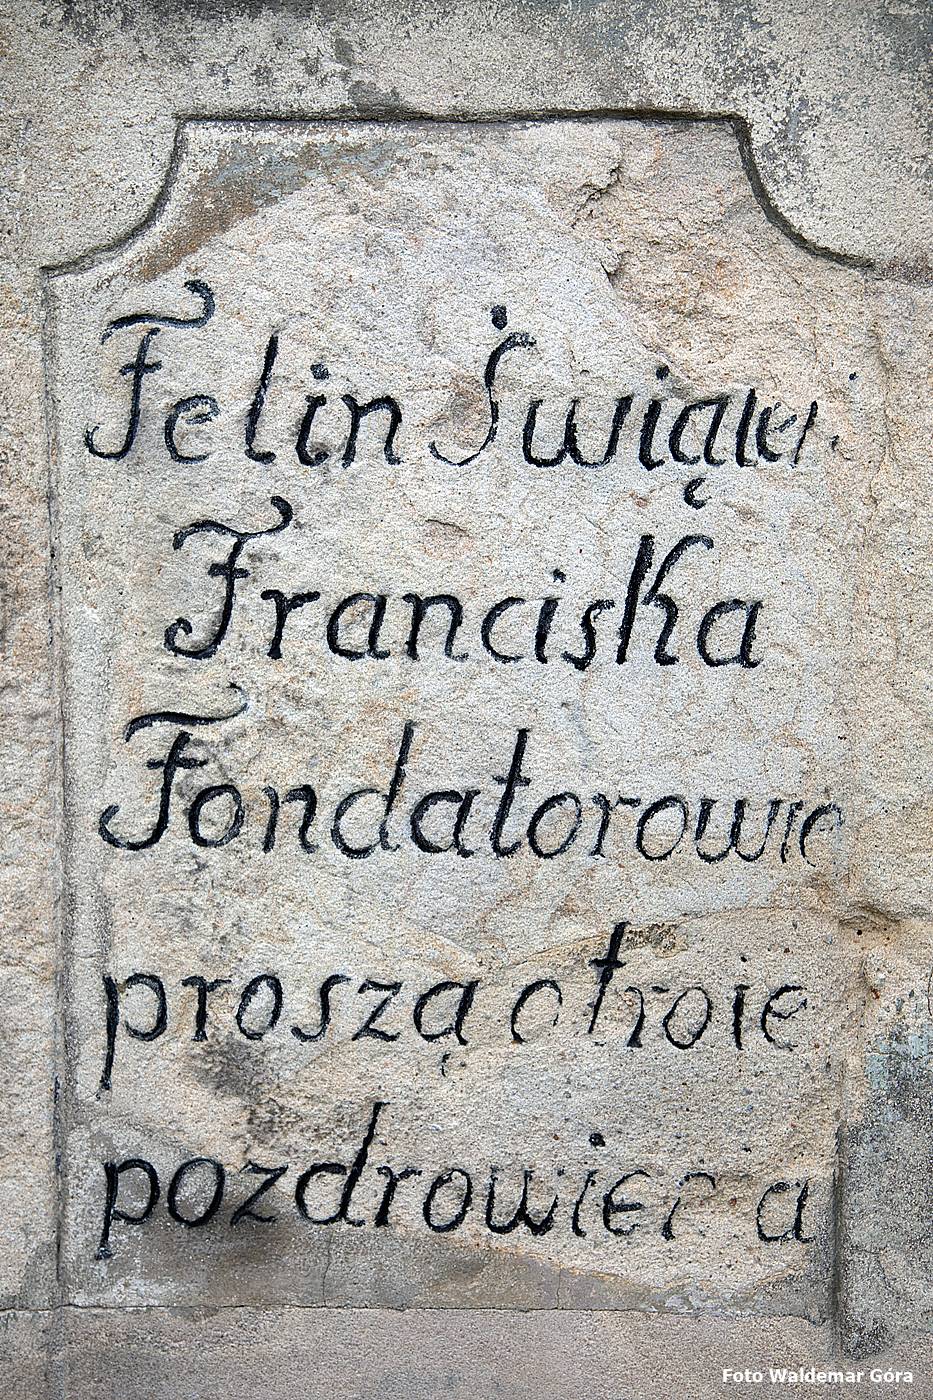 Felin
Franciska
Fondatorowie
proszą o troie
pozdrowienia
Foto Waldemar Góra